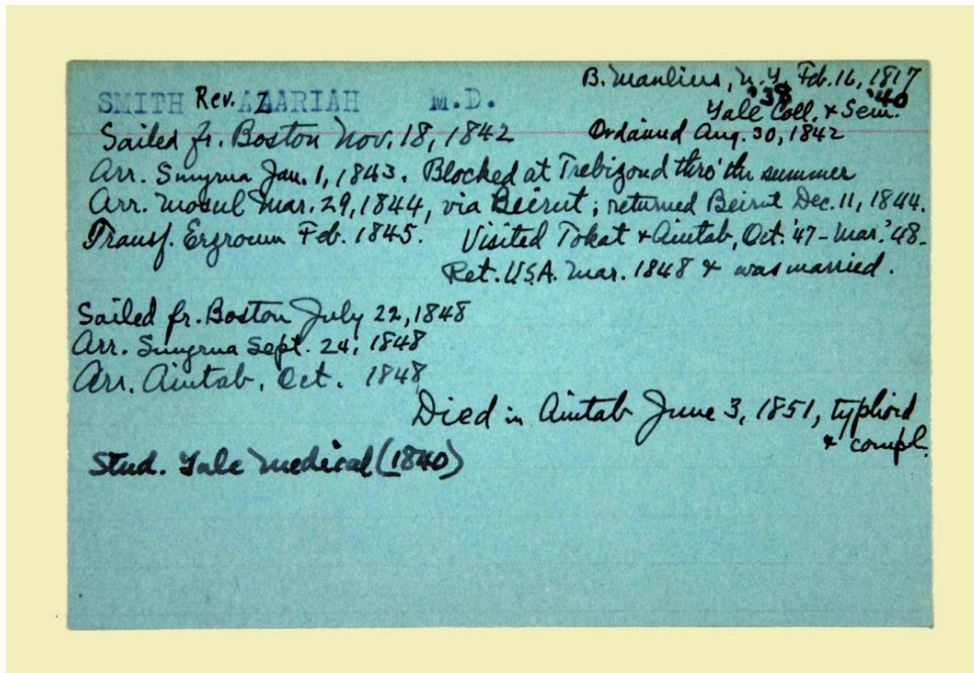 B. Manlius, N.Y. Feb. 16, 1817
SMITH Rev. AZARIAH M.D.
'39 '40
Yale Coll. & Sem.
Sailed fr. Boston Nov. 18, 1842 Ordained Aug. 30, 1842
Arr. Smyrna Jan. 1, 1843. Blocked at Trebizond thro' the summer
Arr. Mosul Mar. 29, 1844, via Beirut; returned Beirut Dec. 11, 1844.
Transf. Erzroum Feb. 1845. Visited Tokat & Aintab, Oct. '47 - Mar. '48 -
Ret. U.S.A. Mar. 1848 & was married.
Sailed fr. Boston July 22, 1848
Arr. Smyrna Sept. 24, 1848
Arr. Aintab, Oct. 1848
Died in Aintab June 3, 1851, typhoid
& compl.
Stud. Yale Medical (1840)